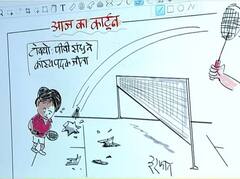 आज का कार्टून
टोक्यो: पीवी सिंधु ने
कांस्य पदक जीता
इरफान